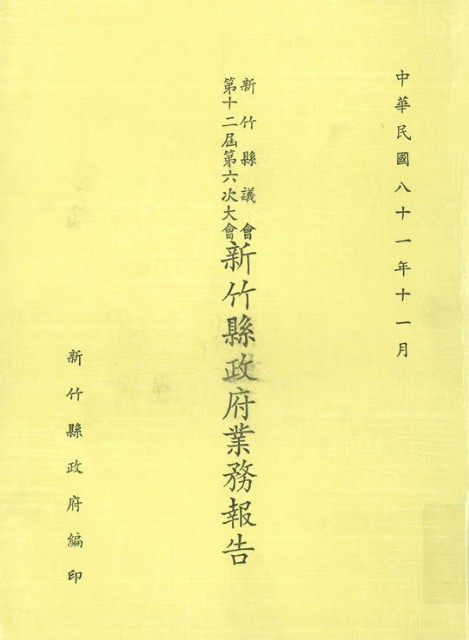 中華民國八十一年十一月
新竹縣議會
第十二屆第六次大會
新竹縣政府業務報告
新竹縣政府編印